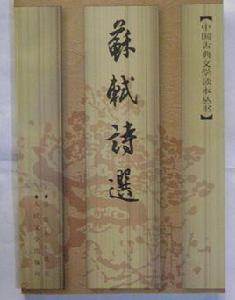 【中国古典文学读本丛书】
蘇軾詩選